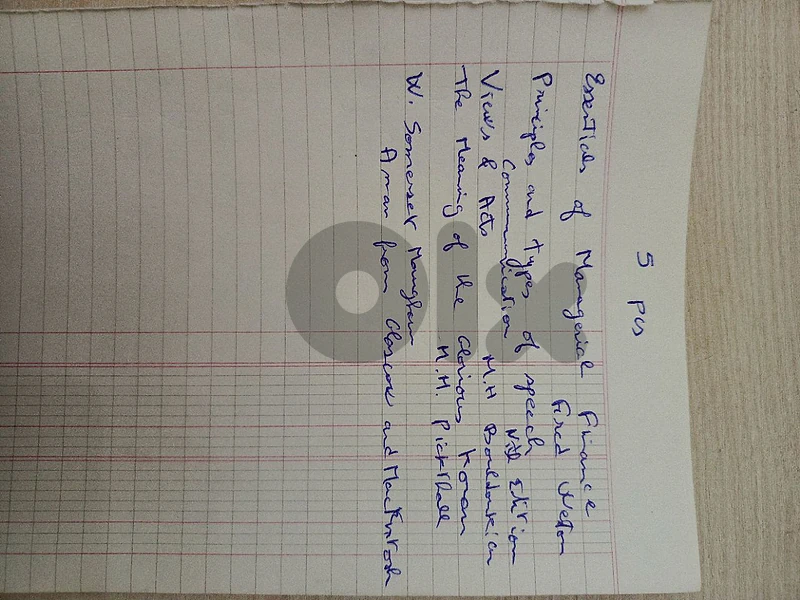 5 pcs
Essentials of Managerial Finance
Fred Weston
Principles and types of speech
Communication Nth Edition
Views & Acts M.H
The Meaning of the Glorious Koran
M.H. Pickthall
W. Somerset Maugham
A man from Glascow and MacKintosh
OLX